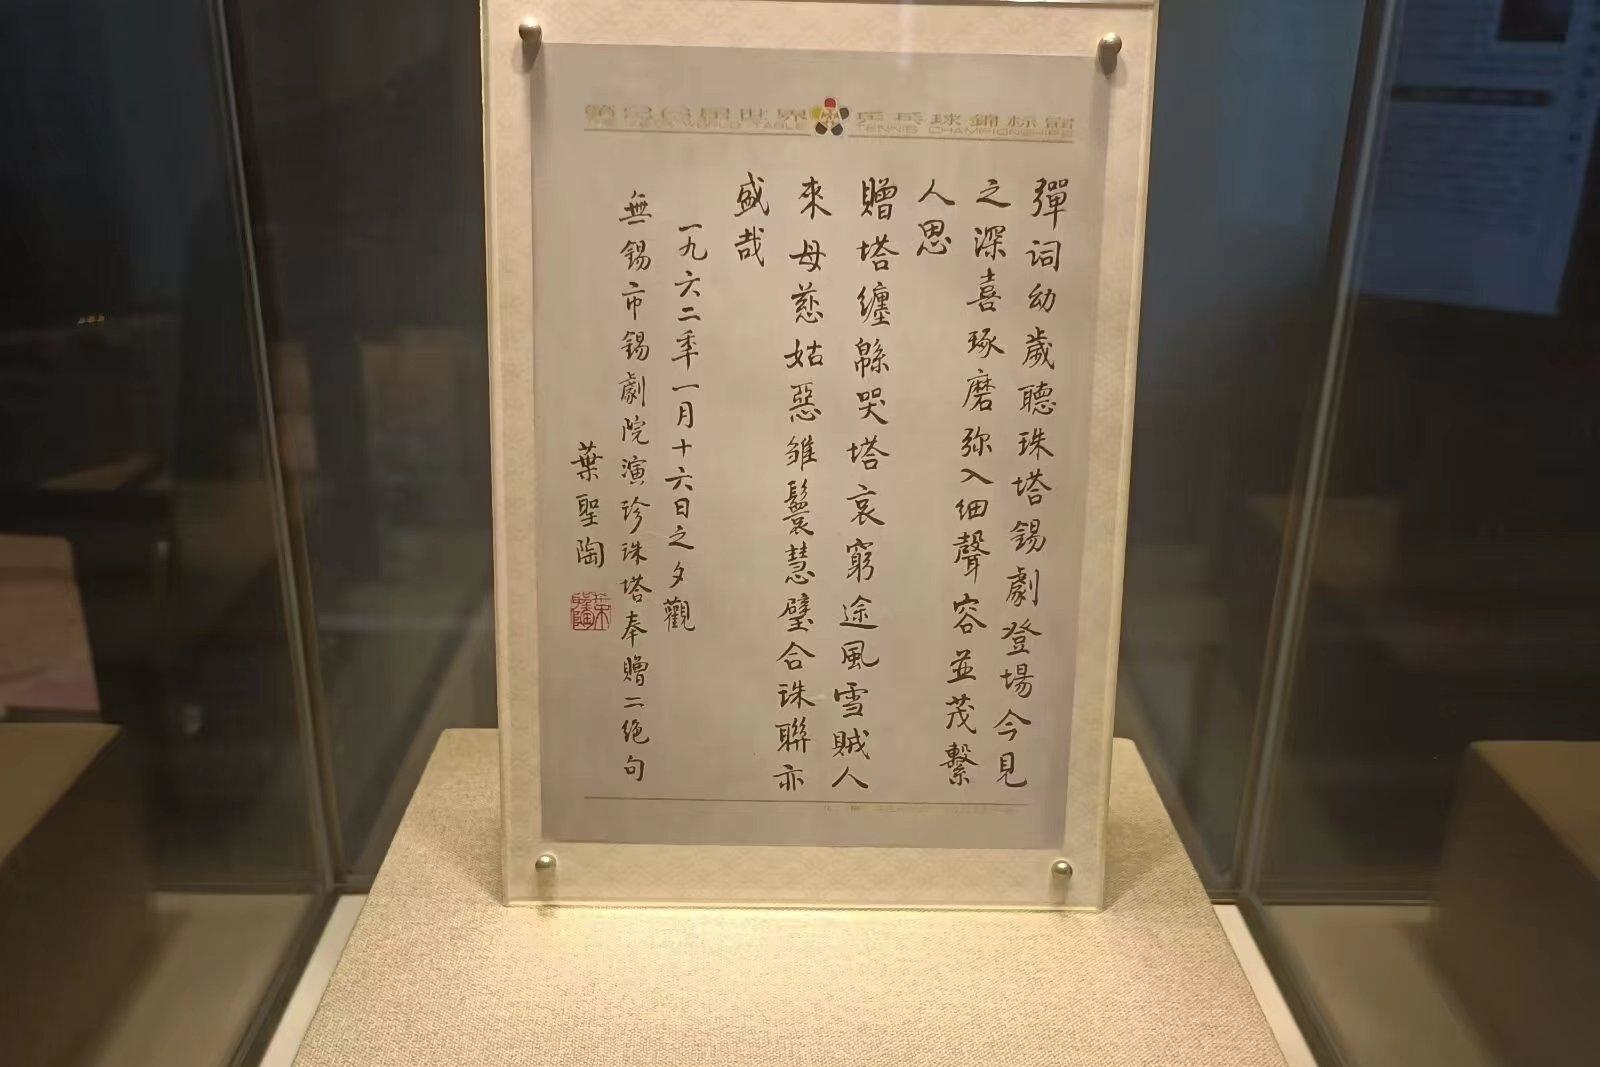 世界乒乓球錦标賽
WORLD TABLE TENNIS CHAMPIONSHIPS
彈词幼歲聽珠塔錫劇登場今見
之深喜琢磨弥入細聲容並茂繫
人思
贈塔纏緜哭塔哀窮途風雪賊人
來母慈姑惡雏鬟慧璧合珠聯亦
盛哉
一九六二年一月十六日之夕觀
無錫市錫劇院演珍珠塔奉贈二绝句
葉聖陶